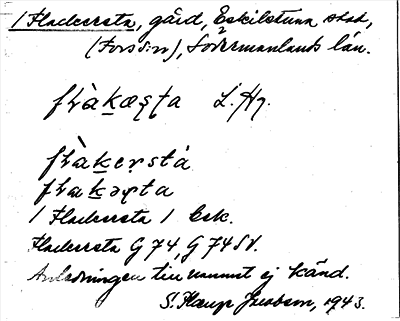 1 Flackersta, gård, Eskilstuna stad,
(Fors sn), Södermanlands län.
flàkæʂʈa L. Hg.
flàkeṛstà
flakəʂʈa
1 Flackersta 1 bsk.
Flackersta G 74, G 74 SV.
Anledningen till namnet ej känd.
S. Jacobson, 1943.